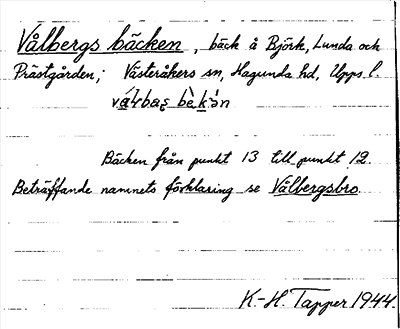 Vålbergs bäcken, bäck å Björk, Lunda och
Prästgården; Västeråkers sn, Hagunda hd, Upps. l.
Bäcken från punkt 13 till punkt 12.
Beträffande namnets förklaring se Vålbergsbro
K.-H. Tapper 1944.